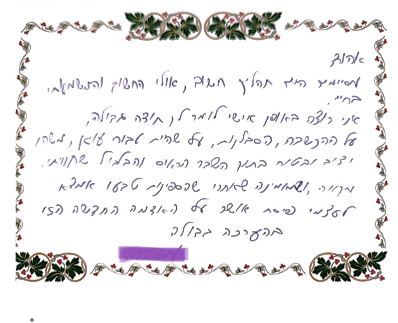 אהוד
מסיימים היום תהליך חשוב, אולי החשוב והמשמעותי
בחיי.
אני רוצה באופן אישי לומר לך תודה גדולה,
על ההקשבה, הסבלנות, על שהיית עבורי עוגן, משהו
יציב ובטוח בתוך השבר הראוס והבלבול שחוויתי.
מקווה, ומאמינה שאחרי שהספינות טבעו אמצא
לעצמי פיסת אושר על האדמה החדשה הזו
בהערכה גדולה